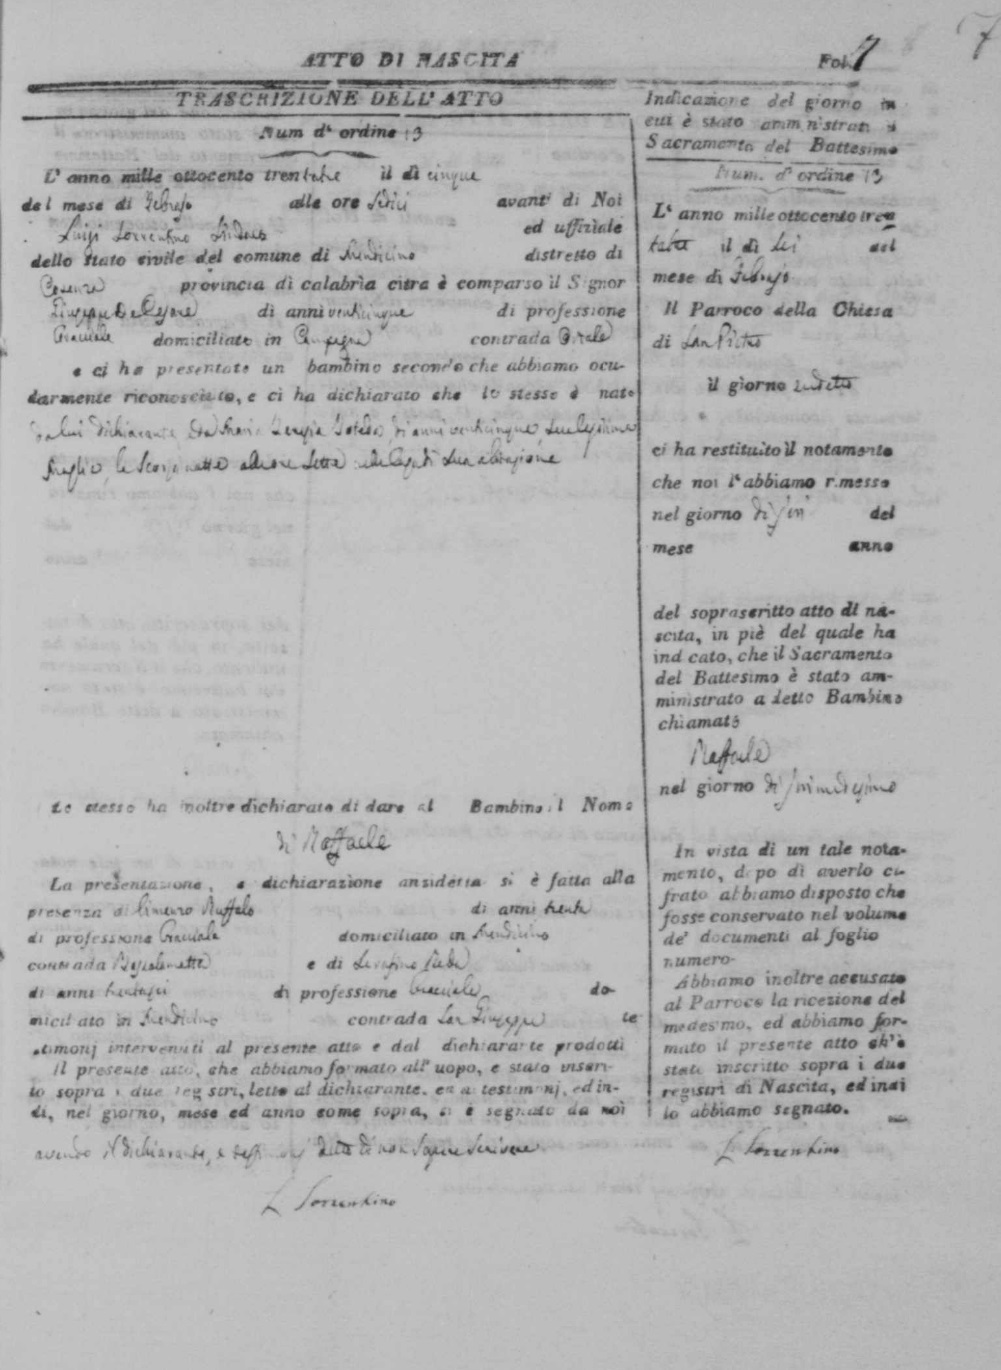 7
ATTO DI NASCITA
Fol. 7
TRASCRIZIONE DELL' ATTO
Num d' ordine 13
L' anno mille ottocento trentatre il dì cinque
del mese di Febrajo alle ore sedici avanti di Noi
Luigi Sorrentino Sindaco ed uffiziale
dello stato civile del comune di Mendicino distretto di
Cosenza provincia di calabria citra è comparso il Signor
Giuseppe De Cesare di anni venticinque di professione
Bracciale domiciliato in Campagna contrada
e ci ha presentato un bambino secondo che abbiamo ocu-
larmente riconosciuto, e ci ha dichiarato che lo stesso è nato
da lui dichiarante e da Maria Teresia di anni venticinque, sua legitima
moglie alle ore sette abitazione
Lo stesso ha inoltre dichiarato di dare al Bambino il Nome
di Raffaele
La presentazione, e dichiarazione anzidetta si è fatta alla
presenza di Ruffolo di anni trenta
di professione Bracciale domiciliato in Mendicino
contrada e di Serafino
di anni trentasei di professione Bracciale do-
miciliato in Mendicino contrada San Giuseppe te-
stimonj intervenuti al presente atto e dal dichiarante prodotti
Il presente atto, che abbiamo formato all' uopo, è stato inseri-
to sopra i due registri, letto al dichiarante, ed a testimonj, ed in-
di, nel giorno, mese ed anno come sopra, si è segnato da noi
avendo il dichiarante, e testimonj detto di non sapere scrivere
L Sorrentino
Indicazione del giorno in
cui è stato amministrato il
Sacramento del Battesimo
Num. d' ordine 13
L' anno mille ottocento tren
tatre il dì sei del
mese di Febrajo
Il Parroco della Chiesa
di San Pietro
il giorno sudetto
ci ha restituito il notamento
che noi l' abbiamo rimesso
nel giorno del
mese anno
del soprascritto atto di na-
scita, in piè del quale ha
indicato, che il Sacramento
del Battesimo è stato am-
ministrato a detto Bambino
chiamato
Raffaele
nel giorno
In vista di un tale nota-
mento, dopo di averlo ci-
frato abbiamo disposto che
fosse conservato nel volume
de' documenti al foglio
numero
Abbiamo inoltre accusato
al Parroco la ricezione del
medesimo, ed abbiamo for-
mato il presente atto ch'è
stato inscritto sopra i due
registri di Nascita, ed indi
lo abbiamo segnato.
L Sorrentino